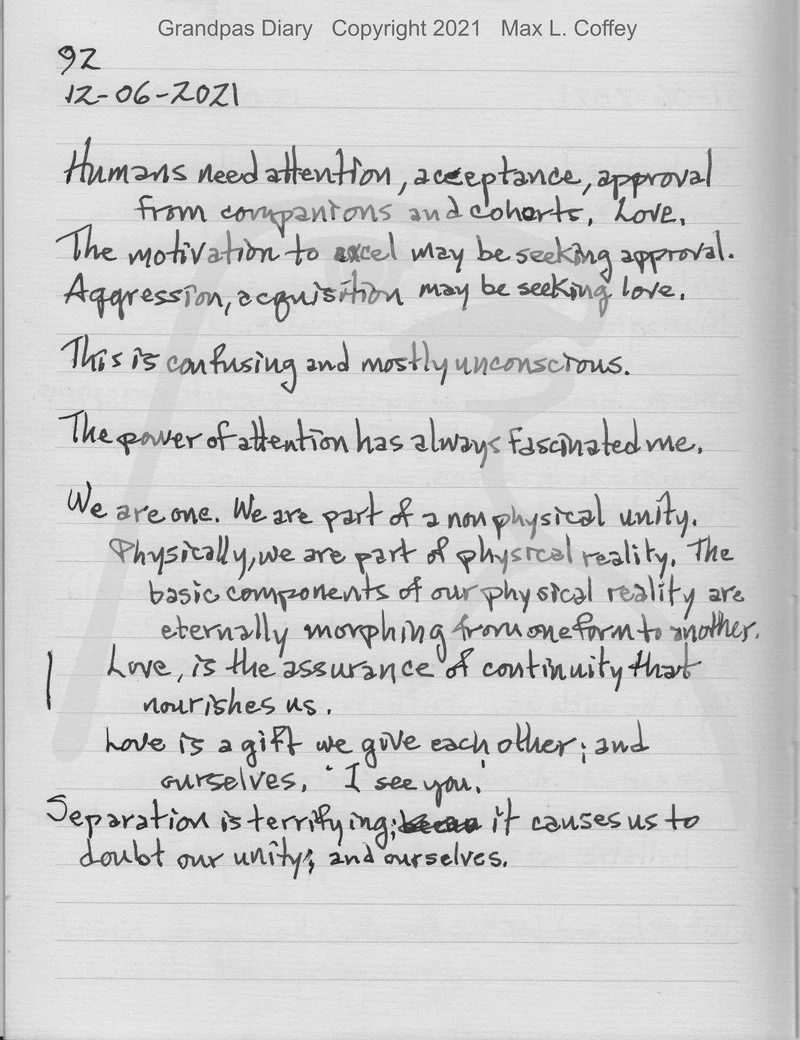 Grandpas Diary Copyright 2021 Max L. Coffey
92
12-06-2021
Humans need attention, acceptance, approval
from companions and cohorts. Love.
The motivation to excel may be seeking approval.
Aggression, acquisition may be seeking love.
This is confusing and mostly unconscious.
The power of attention has always fascinated me.
We are one. We are part of a non physical unity.
Physically, we are part of physical reality. The
basic components of our physical reality are
eternally morphing from one form to another.
Love, is the assurance of continuity that
nourishes us.
Love is a gift we give each other; and
ourselves. 'I see you.'
Separation is terrifying; it causes us to
doubt our unity; and ourselves.